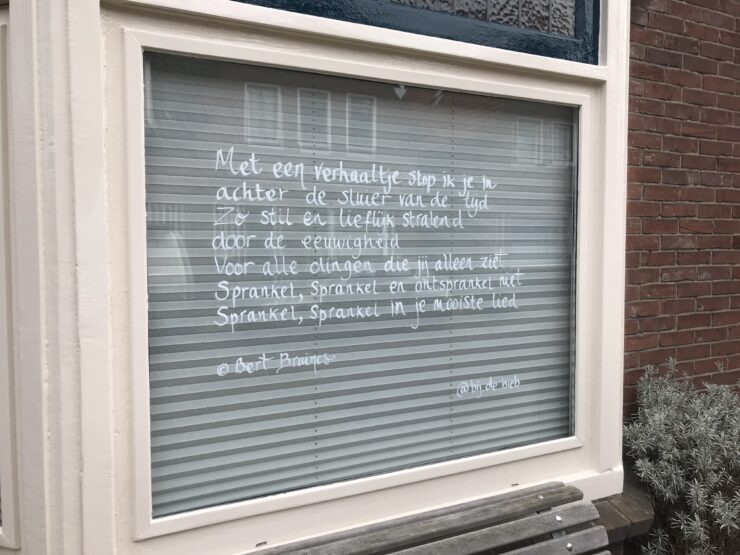 Met een verhaaltje stop ik je in
achter de sluier van de tyd
Zo stil en lieflijk stralend
door de eeuwigheid
Voor alle dingen die jij alleen ziet
Sprankel, Sprankel en ontsprankel niet
Sprankel, Sprankel in je mooiste lied
© Bert Bruines
@bij.de.bieb